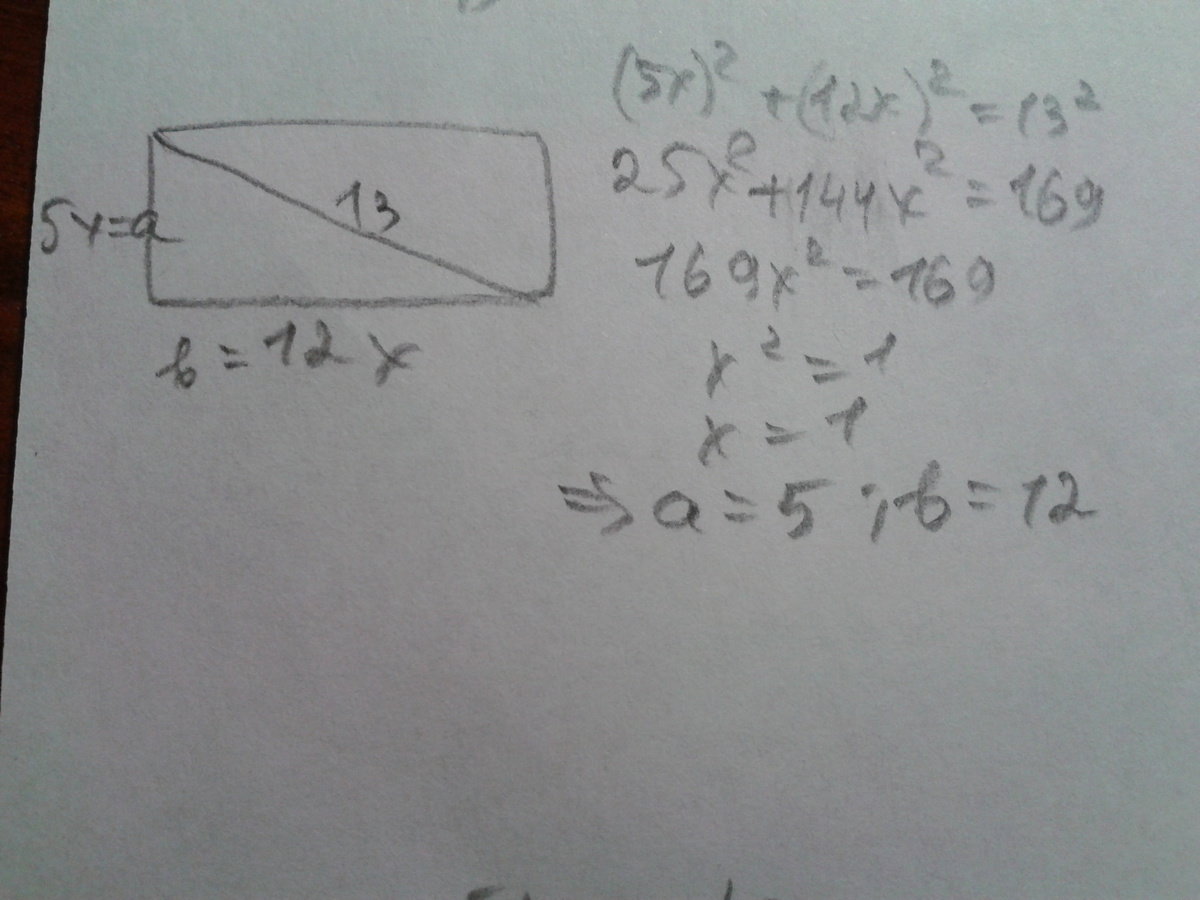 5x=a
13
b = 12x
(5x)² + (12x)² = 13²
25x² + 144x² = 169
169x² = 169
x² = 1
x = 1
⇒ a = 5 ; b = 12